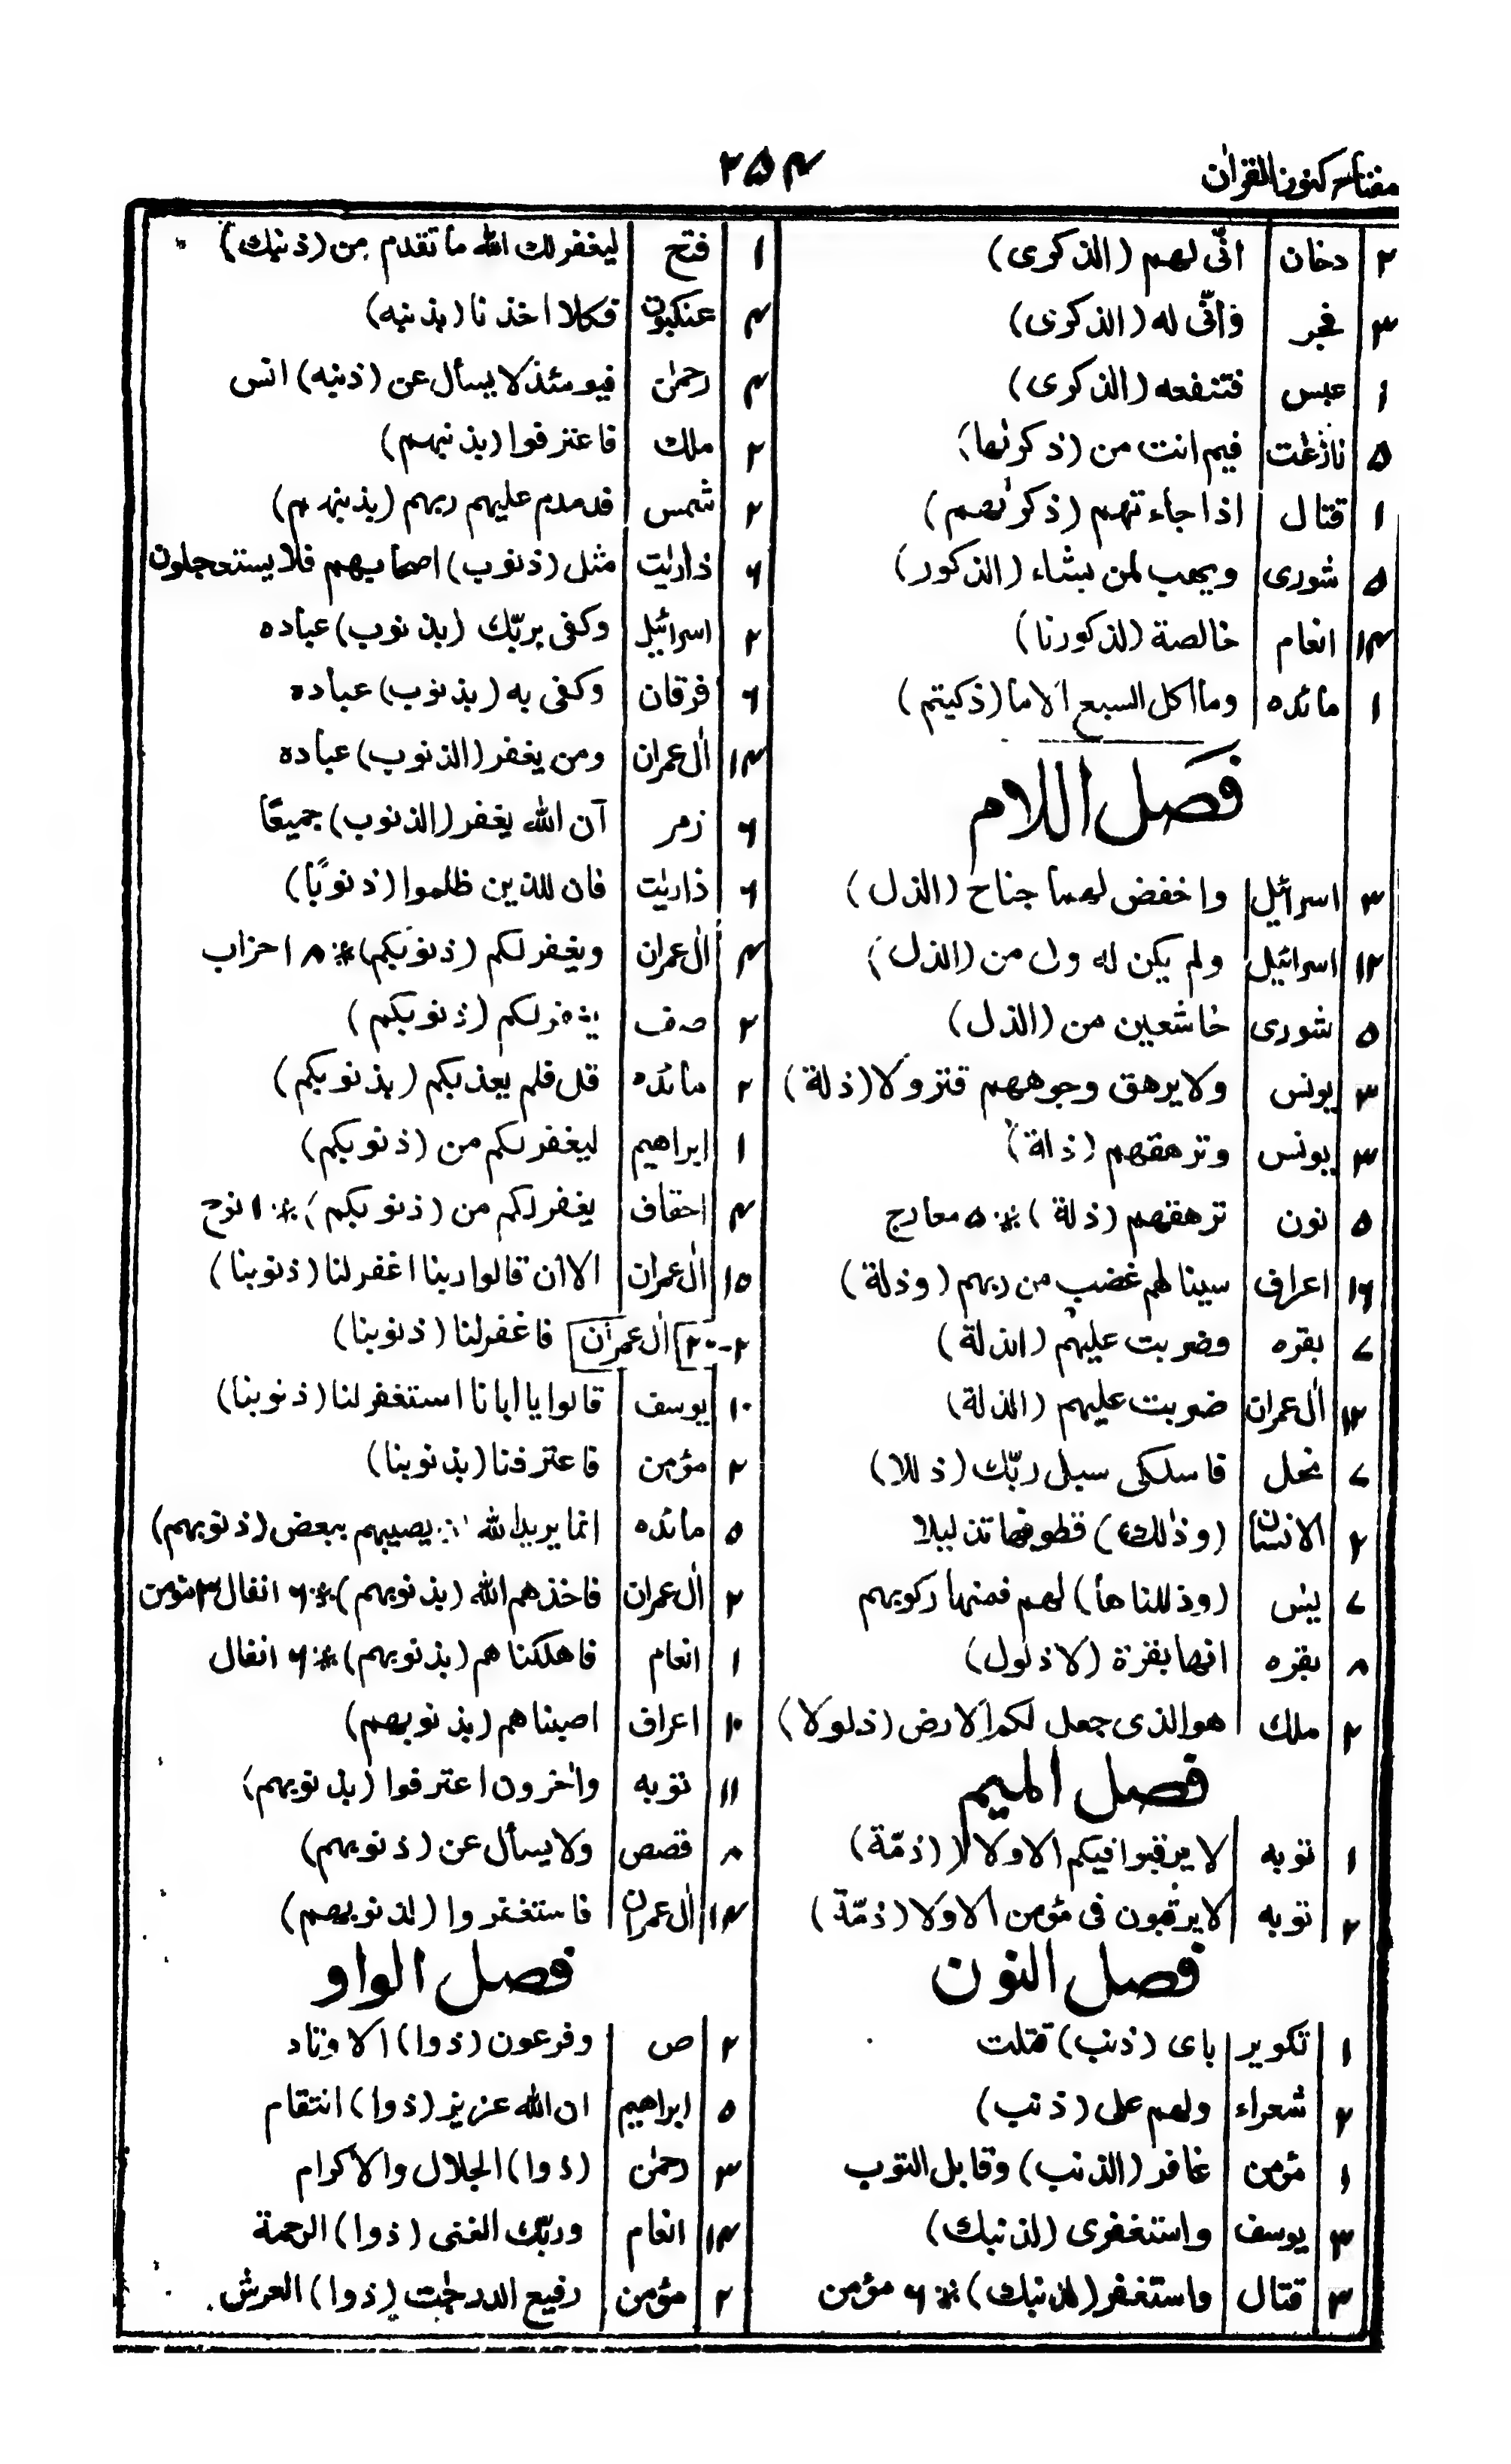 مفتاح كنوز القرآن
۲۵۴
۲ دخان انّى لهم (الذكرى)
۳ فجر وانّى له (الذكرى)
۱ عبس فتنفعه (الذكرى)
۵ نازعٰت فيم انت من (ذكرٰىها)
۱ قتال اذا جاءتهم (ذكرٰىهم)
۵ شورى ويهب لمن يشاء (الذكور)
۱۴ انعام خالصة (لذكورنا)
۱ مائده وما اكل السبع الاما (ذكيتم)
فصل اللام
۳ اسرائيل واخفض لهما جناح (الذل)
۱۲ اسرائيل ولم يكن له ولى من (الذل)
۵ شورى خاشعين من (الذل)
۳ يونس ولا يرهق وجوههم قتر ولا (ذلة)
۳ يونس وترهقهم (ذلة)
۵ نون ترهقهم (ذلة) ※ ۵ معارج
۱۶ اعراف سينالهم غضب من ربهم (وذلة)
۷ بقره وضربت عليهم (الذلة)
۱۲ اٰل عمران ضربت عليهم (الذلة)
۷ نحل فاسلكى سبل ربّك (ذللا)
۲ الانسان (وذللت) قطوفها تذليلا
۷ يٰس (وذللناها) لهم فمنها ركوبهم
۸ بقره انها بقرة (لا ذلول)
۲ ملك هو الذى جعل لكم الارض (ذلولا)
فصل الميم
۱ توبه لا يرقبوا فيكم الا ولا (ذمّة)
۲ توبه لا يرقبون فى مؤمن الا ولا (ذمّة)
فصل النون
۱ تكوير باى (ذنب) قتلت
۲ شعراء ولهم على (ذنب)
۱ مؤمن غافر (الذنب) وقابل التوب
۳ يوسف واستغفرى (لذنبك)
۳ قتال واستغفر (لذنبك) ※ ۶ مؤمن
۱ فتح ليغفر لك الله ما تقدم من (ذنبك)
۴ عنكبوت فكلا اخذنا (بذنبه)
۴ رحمٰن فيومئذ لا يسأل عن (ذنبه) انس
۲ ملك فاعترفوا (بذنبهم)
۲ شمس فدمدم عليهم ربهم (بذنبهم)
۶ ذاريٰت مثل (ذنوب) اصحابهم فلا يستعجلون
۲ اسرائيل وكفى بربّك (بذنوب) عباده
۶ فرقان وكفى به (بذنوب) عباده
۱۴ اٰل عمران ومن يغفر (الذنوب) عباده
۶ زمر ان الله يغفر (الذنوب) جميعًا
۶ ذاريٰت فان للذين ظلموا (ذنوبًا)
۴ اٰل عمران ويغفر لكم (ذنوبكم) ※ ۸ احزاب
۲ صف يغفر لكم (ذنوبكم)
۲ مائده قل فلم يعذبكم (بذنوبكم)
۱ ابراهيم ليغفر لكم من (ذنوبكم)
۴ احقاف يغفر لكم من (ذنوبكم) ※ ۱ نوح
۱۵ اٰل عمران الا ان قالوا ربنا اغفر لنا (ذنوبنا)
۲-۲۰ اٰل عمران فاغفر لنا (ذنوبنا)
۱۰ يوسف قالوا يا ابانا استغفر لنا (ذنوبنا)
۲ مؤمن فاعترفنا (بذنوبنا)
۵ مائده انما يريد الله ∴ يصيبهم ببعض (ذنوبهم)
۲ اٰل عمران فاخذهم الله (بذنوبهم) ※ ۶ انفال ۳ مؤمن
۱ انعام فاهلكناهم (بذنوبهم) ※ ۶ انفال
۱۰ اعراف اصبناهم (بذنوبهم)
۱۱ توبه واٰخرون اعترفوا (بذنوبهم)
۸ قصص ولا يسأل عن (ذنوبهم)
۱۴ اٰل عمران فاستغفروا (لذنوبهم)
فصل الواو
۲ ص وفرعون (ذوا) الاوتاد
۵ ابراهيم ان الله عزيز (ذوا) انتقام
۳ رحمٰن (ذوا) الجلال والاكرام
۱۴ انعام وربّك الغنى (ذوا) الرحمة
۲ مؤمن رفيع الدرجٰت (ذوا) العرش